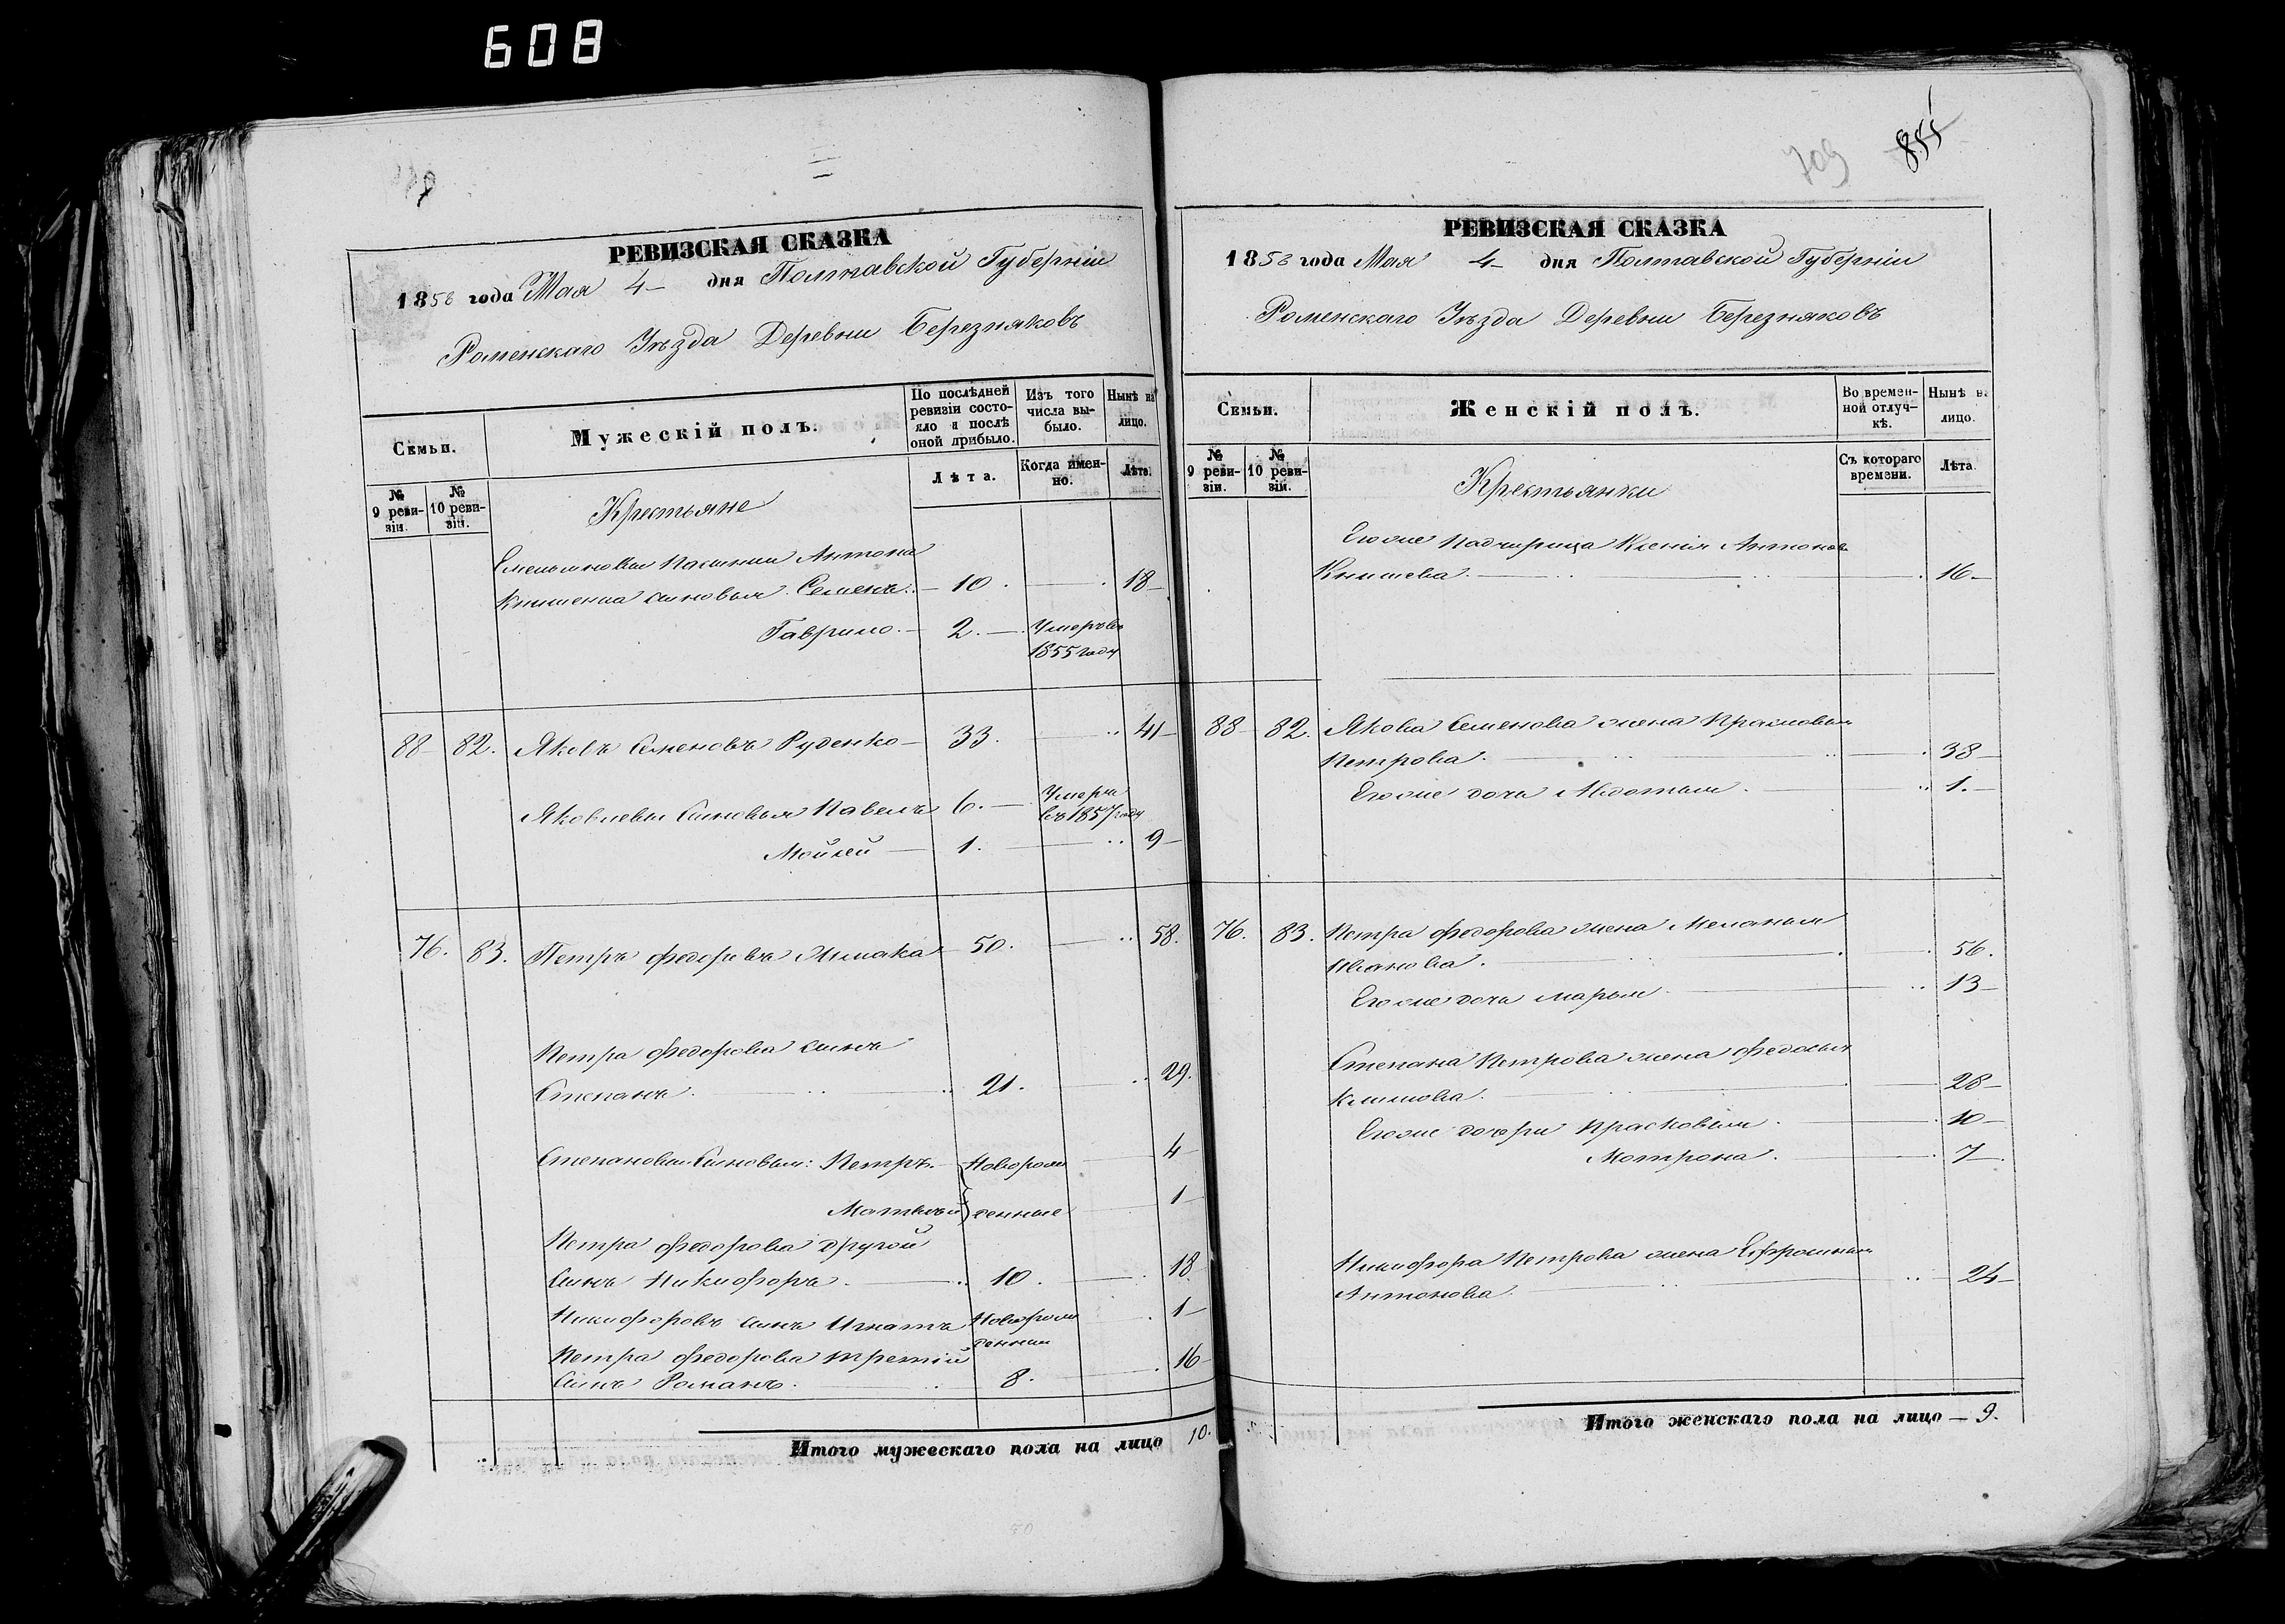 608
РЕВИЗСКАЯ СКАЗКА
1858 года Мая 4 дня Полтавской Губернiи
Роменскаго Уѣзда Деревни Березняковъ
Семьи.
Мужескiй полъ.
По послѣдней ревизiи состояло и послѣ оной прибыло.
Изъ того числа выбыло.
Нынѣ на лицо.
№ 9 ревизiи.
№ 10 ревизiи.
Крестьяне
Лѣта.
Когда именно.
Лѣта.
Емельяновы Пасынки Антона
сыновья. Семенъ. — 10. — 18 —
Гаврило. — 2. — Умеръ въ
1855 году
88 — 82. Яковъ Семеновъ Руденко — 33. — 41 —
Яковлевы Сыновья Павелъ 6. — Умеръ
въ 1857 году
Мойсей — 1. — 9 —
76. 83. Петръ Федоровъ 50. — 58.
Петра Федорова сынъ
Степанъ. 21. — 29.
Степановы Сыновья: Петръ. — Новорож 4 —
Матвѣй денные 1 —
Петра Федорова другой
сынъ Никифоръ. — 10. — 18
Никифоровъ сынъ Игнатъ Новорож 1 —
денный
Петра Федорова третiй 16 —
Сынъ Романъ. 8.
Итого мужескаго пола на лицо 10.
709 855
РЕВИЗСКАЯ СКАЗКА
1858 года Мая 4 дня Полтавской Губернiи
Роменскаго Уѣзда Деревни Березняковъ
Семьи.
Женскiй полъ.
Во временной отлучкѣ.
Нынѣ на лицо.
№ 9 ревизiи.
№ 10 ревизiи.
Крестьянки
Съ котораго времени.
Лѣта.
Егоже падчерица Ксенiя Антонова
16 —
88 — 82. Якова Семенова жена Прасковья
Петрова. — 38 —
Егоже дочь Авдотья. 1. —
76. 83. Петра Федорова жена Меланья
Иванова. — 56.
Егоже дочь Марья — 13 —
Степана Петрова жена Федосья
Климова. — 28 —
Егоже дочери Прасковья. — 10 —
Мотрона. — 7 —
Никифора Петрова жена Ефросинья
Антонова. — 24 —
Итого женскаго пола на лицо — 9.